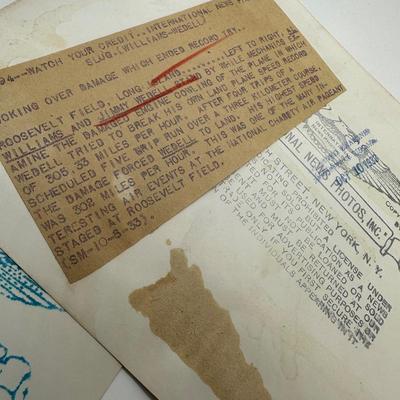 94--WATCH YOUR CREDIT..INTERNATIONAL NEWS
SLUG.(WILLIAMS-WEDELL)
OKING OVER DAMAGE WHICH ENDED RECORD TRY.
ROOSEVELT FIELD, LONG ISLAND......LEFT TO RIGHT,
WILLIAMS AND JIMMY WEDELL STAND BY WHILE MECHANICS EX
AMINE THE DAMAGED ENGINE COWLING OF THE PLANE IN WHICH
WEDELL TRIED TO BREAK HIS OWN LAND PLANE SPEED RECORD
OF 305.33 MILES PER HOUR. AFTER FOUR TRIPS OF A
SCHEDULED FIVE WERE RUN OVER A THREE KILOMETER COURSE,
THE DAMAGE FORCED WEDELL TO LAND. HIS HIGHEST SPEED
WAS 302 MILES PER HOUR. THIS WAS ONE OF THE MANY IN
TERESTING AIR EVENTS AT THE NATIONAL CHARITY AIR PAGEANT
STAGED AT ROOSEVELT FIELD.
(SM-10-8-33)
NAL NEWS PHOTOS, INC.
STREET NEW YORK, N. Y.
PUBLICATION
LICENSE UNDER
PROHIBITED
MUST NOT BE
USED
LOANED OR SOLD
USED FOR ADVERTISING PURPOSES OR
ONLY IF YOU FIRST SECURE
INDIVIDUALS APPEARING IN IT.